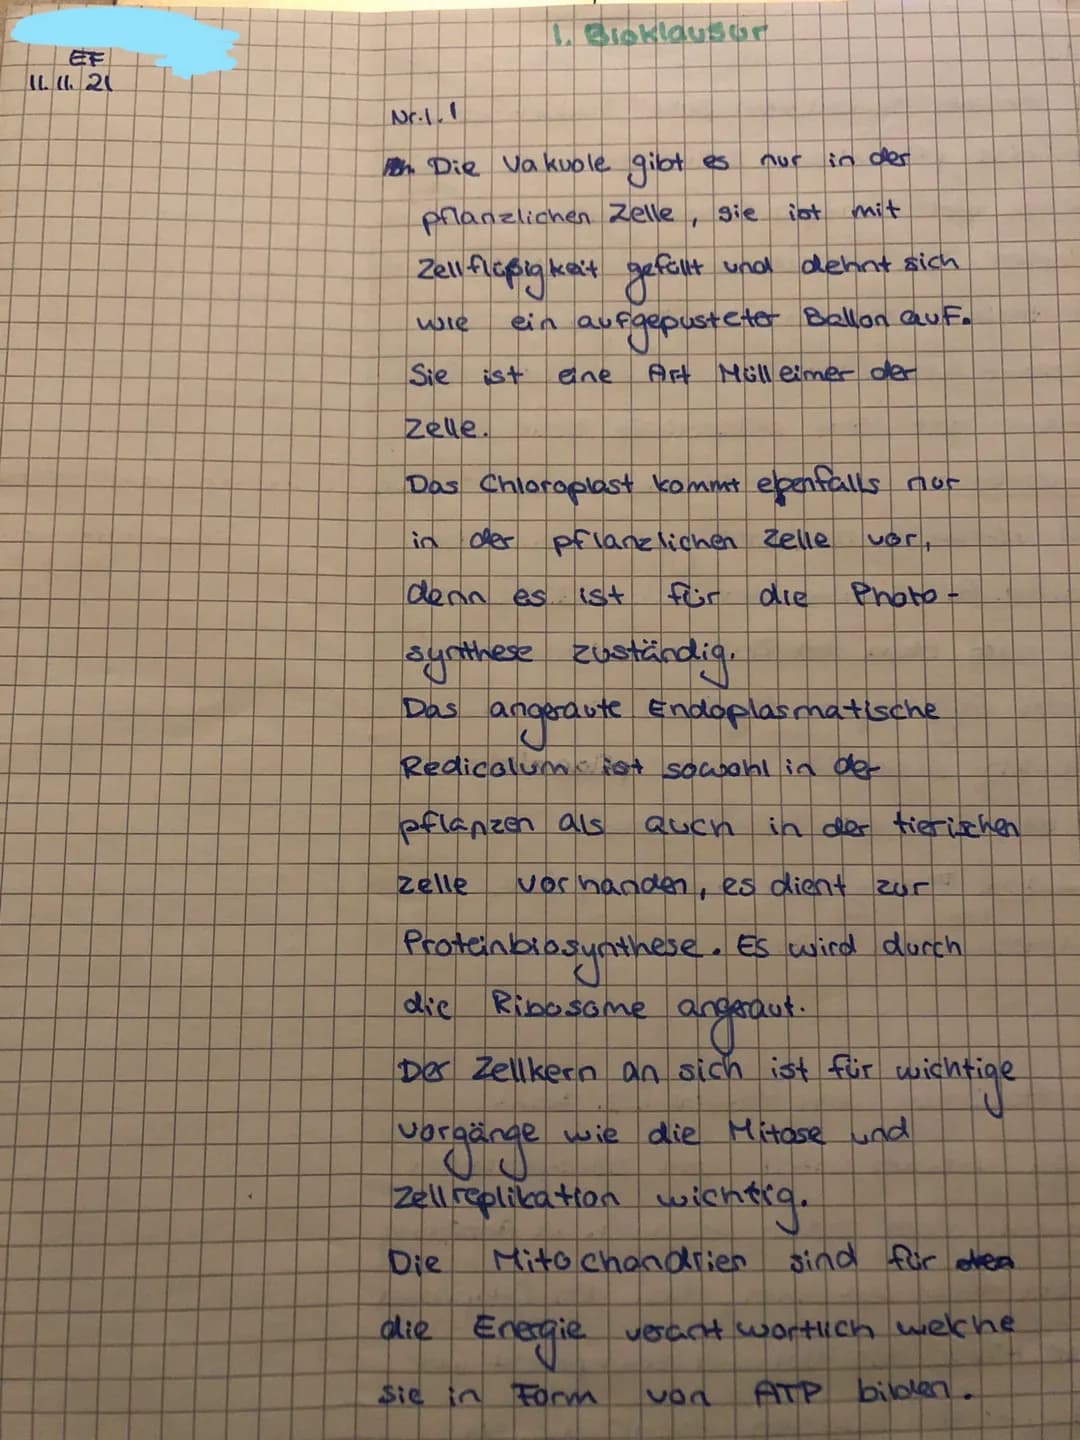 1. Bioklausur
EF
11. 11. 21
Nr. 1. 1
Die Vakuole gibt es nur in der
pflanzlichen Zelle, sie ist mit
Zellflüßigkeit gefüllt und dehnt sich
wie ein aufgepusteter Ballon auf.
Sie ist eine Art Mülleimer der
Zelle.
Das Chloroplast kommt ebenfalls nur
in der pflanzlichen Zelle vor,
denn es ist für die Photo-
synthese zuständig.
Das angeraute Endoplasmatische
Redicolum ist sowohl in der
pflanzen als auch in der tierischen
zelle vorhanden, es dient zur
Proteinbiosynthese. Es wird durch
die Ribosome angeraut.
Der Zellkern an sich ist für wichtige
vorgänge wie die Mitose und
Zellreplikation wichtig.
Die Mitochondrien sind für
die Energie verantwortlich welche
sie in Form von ATP bilden.